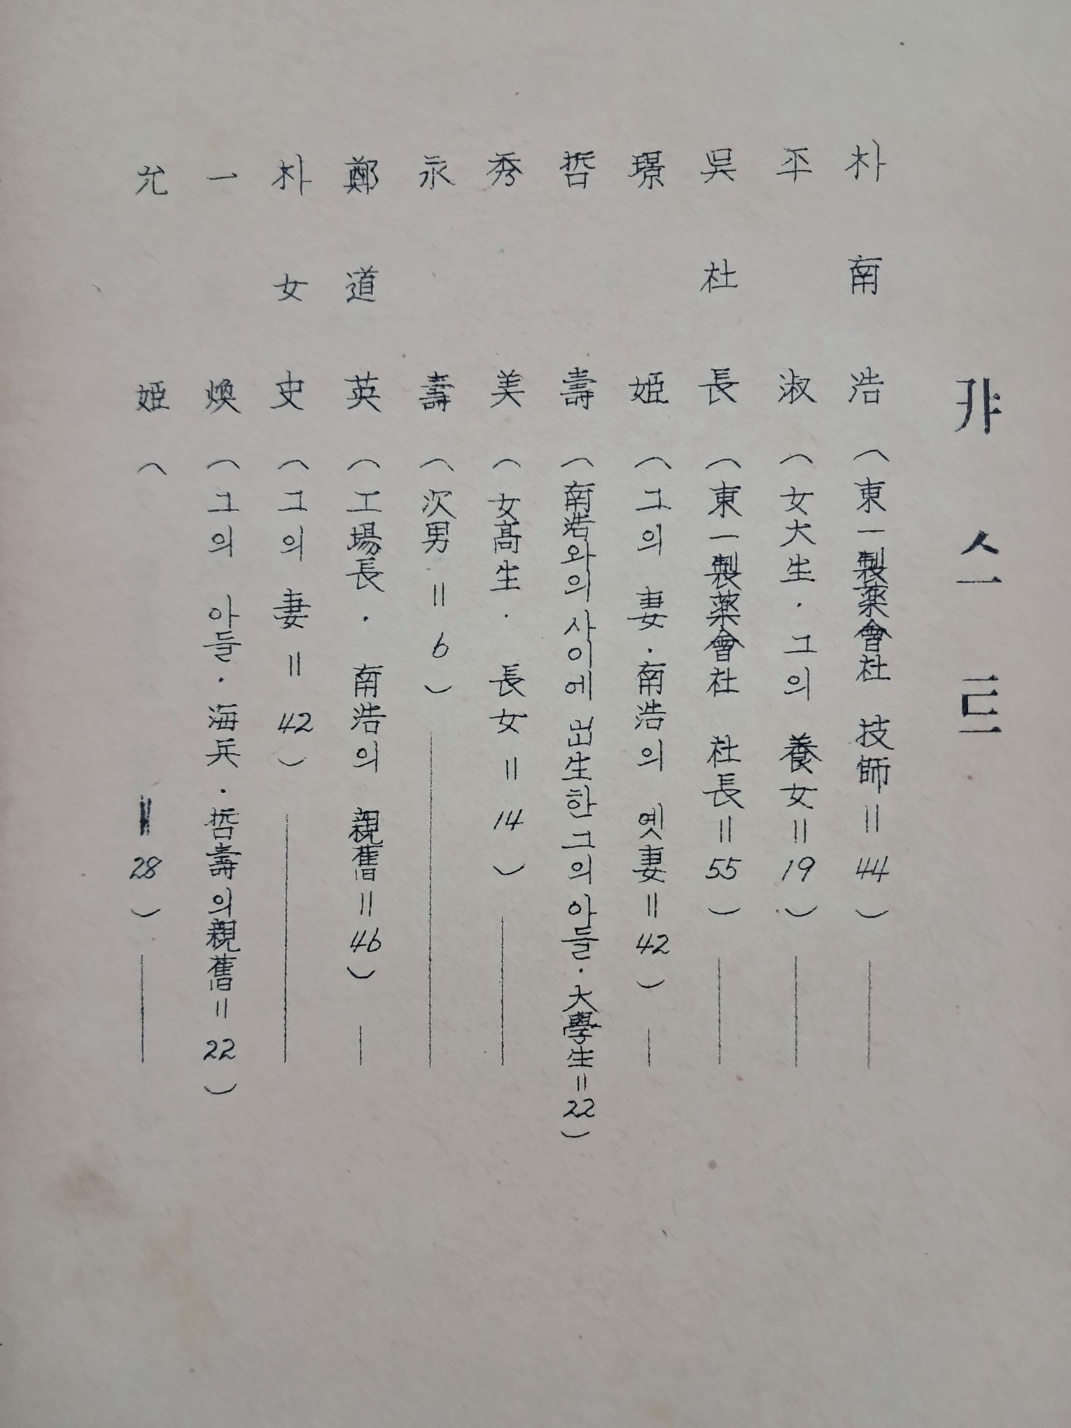 캬스트
朴南浩（東一製薬會社 技師＝44）
平淑（女大生·그의 養女＝19）
吳社長（東一製薬會社 社長＝55）
璟姬（그의 妻·南浩의 옛妻＝42）
哲壽（南浩와의사이에 出生한그의아들·大學生＝22）
秀美（女高生·長女＝14）
永壽（次男＝6）
鄭道英（工場長·南浩의 親舊＝46）
朴女史（그의 妻＝42）
一煥（그의 아들·海兵·哲壽의親舊＝22）
允姬（ ＝28）